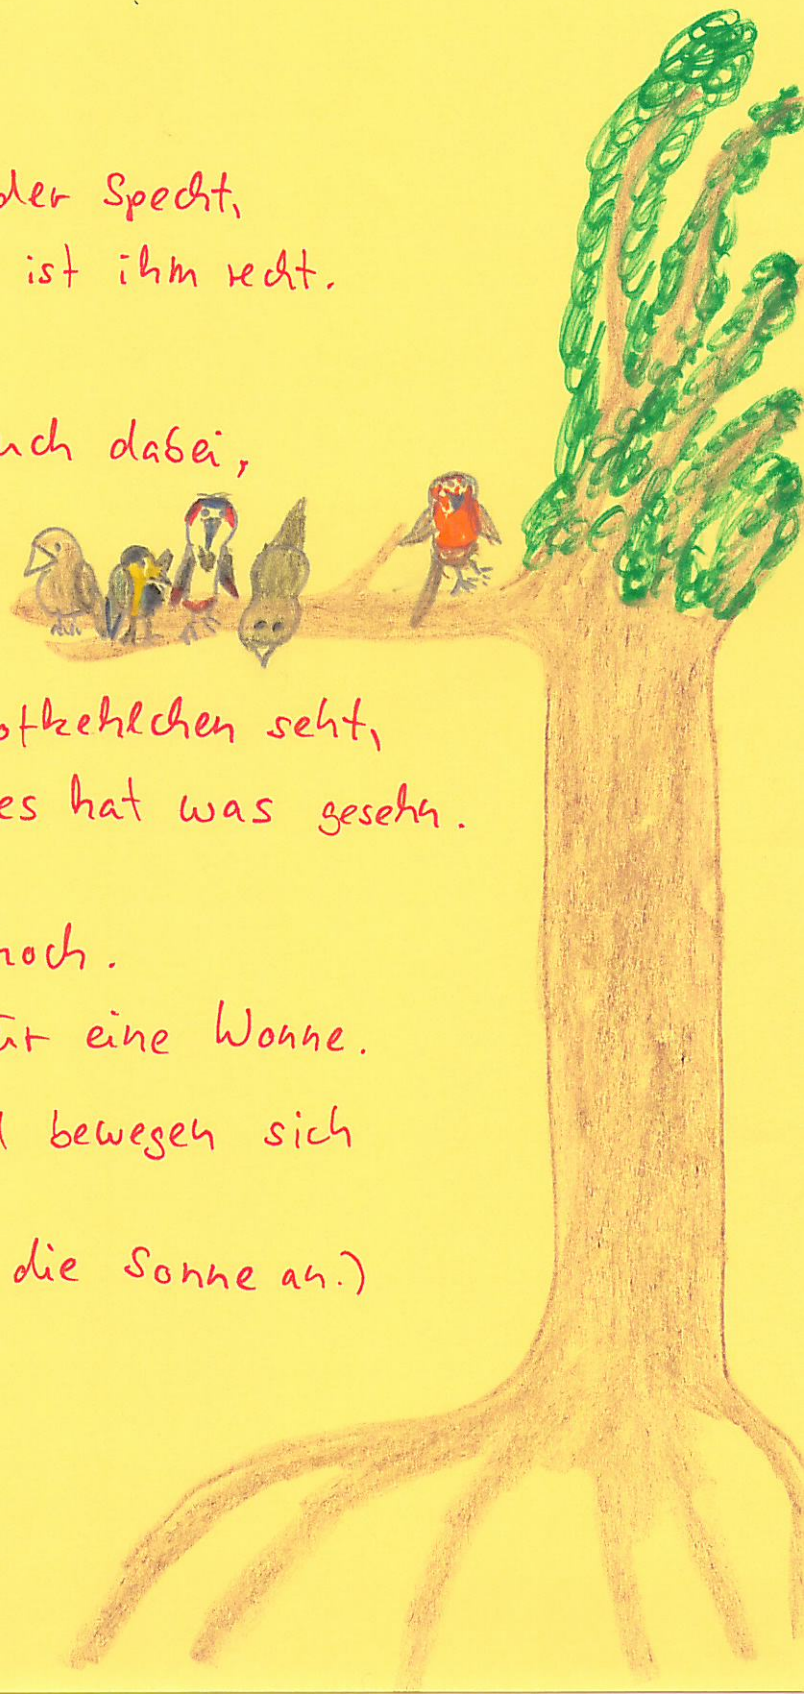 der Specht,
ist ihm recht.
uch dabei,
otkehlchen seht,
es hat was gesehn.
noch.
für eine Wonne.
bewegen sich
die Sonne an.)